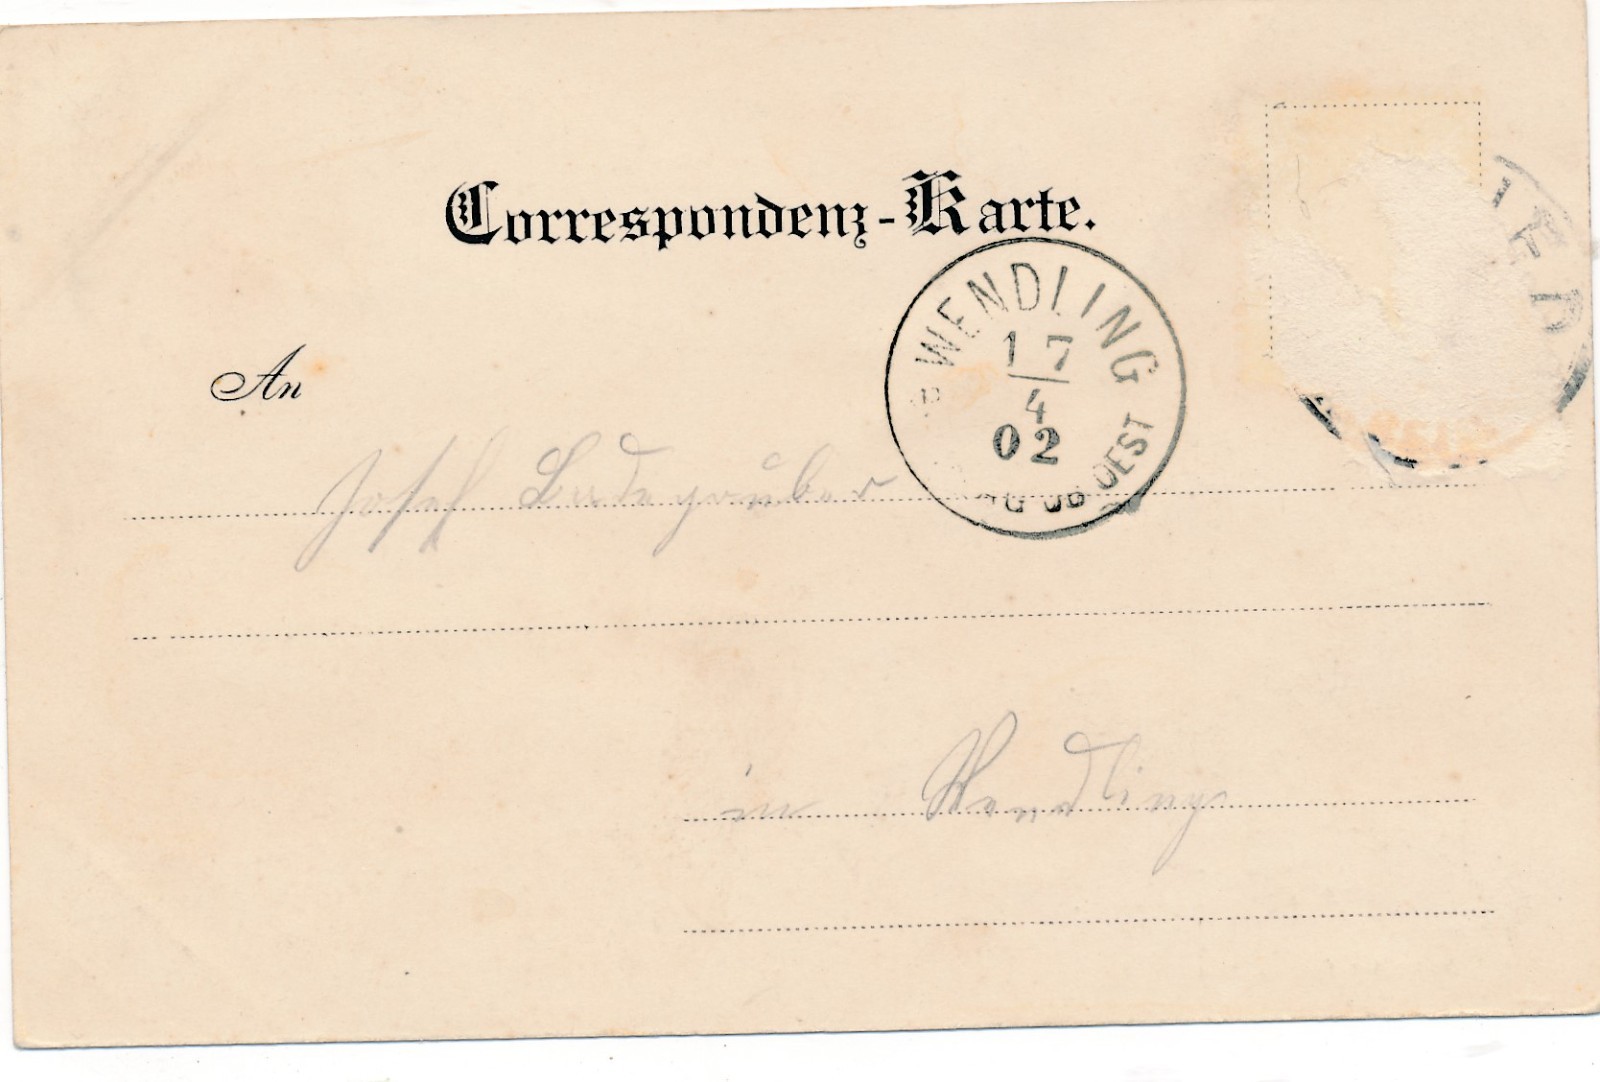 Correspondenz-Karte.
WENDLING
17
4
02
OB OEST
An
Josef
in Wendling